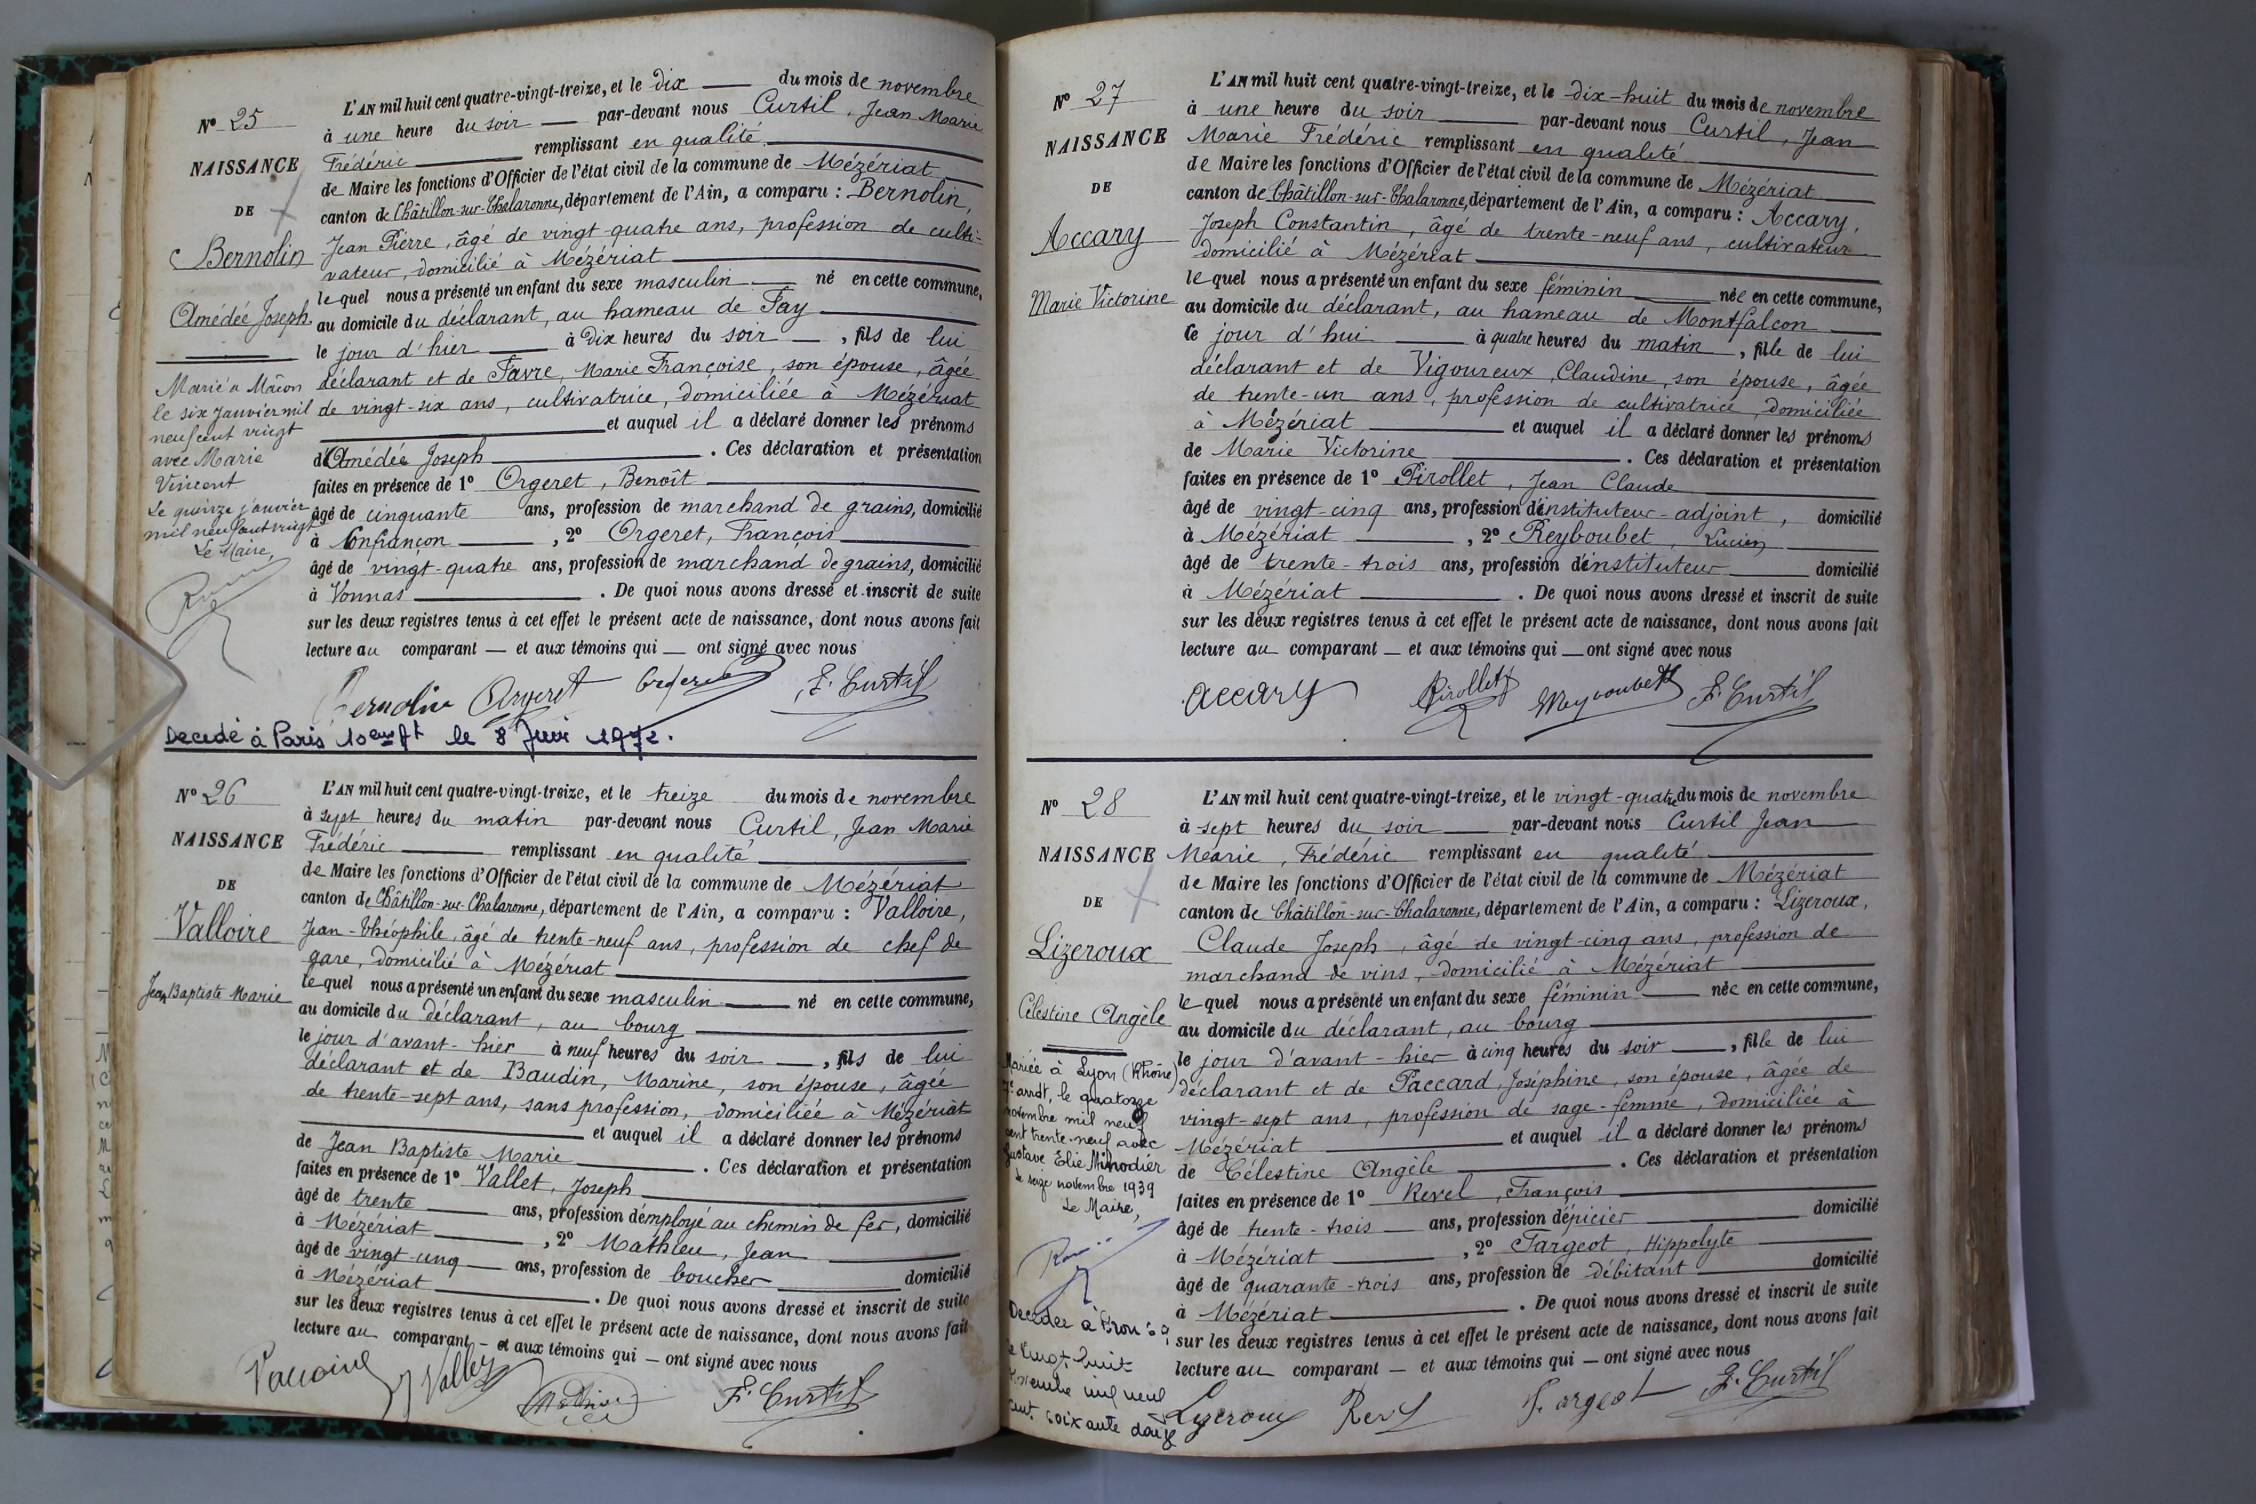 N° 25
NAISSANCE
DE
Bernolin
Amédée Joseph
Marié à Mâcon
le six janvier mil
neuf cent vingt
avec Marie
Vincent
Le quinze janvier
mil neuf cent vingt
Le Maire,
L'AN mil huit cent quatre-vingt-treize, et le dix du mois de novembre
à une heure du soir par-devant nous Curtil, Jean Marie
Frédéric remplissant en qualité
de Maire les fonctions d'Officier de l'état civil de la commune de Mézériat
canton de Châtillon-sur-Chalaronne, département de l'Ain, a comparu : Bernolin,
Jean Pierre, âgé de vingt-quatre ans, profession de culti-
vateur, domicilié à Mézériat
lequel nous a présenté un enfant du sexe masculin né en cette commune,
au domicile du déclarant, au hameau de Fay
le jour d'hier à dix heures du soir, fils de lui
déclarant et de Favre, Marie Françoise, son épouse, âgée
de vingt-six ans, cultivatrice, domiciliée à Mézériat
et auquel il a déclaré donner les prénoms
d'Amédée Joseph. Ces déclaration et présentation
faites en présence de 1° Orgeret, Benoît
âgé de cinquante ans, profession de marchand de grains, domicilié
à Confrançon, 2° Orgeret, François
âgé de vingt-quatre ans, profession de marchand de grains, domicilié
à Vonnas. De quoi nous avons dressé et inscrit de suite
sur les deux registres tenus à cet effet le présent acte de naissance, dont nous avons fait
lecture au comparant — et aux témoins qui — ont signé avec nous
Bernolin Orgeret Orgeret F. Curtil
Decedé à Paris 10eme At le 8 Juin 1972.
N° 26
NAISSANCE
DE
Valloire
Jean Baptiste Marie
L'AN mil huit cent quatre-vingt-treize, et le treize du mois de novembre
à sept heures du matin par-devant nous Curtil, Jean Marie
Frédéric remplissant en qualité
de Maire les fonctions d'Officier de l'état civil de la commune de Mézériat
canton de Châtillon-sur-Chalaronne, département de l'Ain, a comparu : Valloire,
Jean-Théophile, âgé de trente-neuf ans, profession de chef de
gare, domicilié à Mézériat
lequel nous a présenté un enfant du sexe masculin né en cette commune,
au domicile du déclarant, au bourg
le jour d'avant-hier à neuf heures du soir, fils de lui
déclarant et de Baudin, Marine, son épouse, âgée
de trente-sept ans, sans profession, domiciliée à Mézériat
et auquel il a déclaré donner les prénoms
de Jean Baptiste Marie. Ces déclaration et présentation
faites en présence de 1° Vallet, Joseph
âgé de trente ans, profession d'employé au chemin de fer, domicilié
à Mézériat, 2° Mathieu, Jean
âgé de vingt-cinq ans, profession de boucher domicilié
à Mézériat. De quoi nous avons dressé et inscrit de suite
sur les deux registres tenus à cet effet le présent acte de naissance, dont nous avons fait
lecture au comparant — et aux témoins qui — ont signé avec nous
Valloire J Vallet Mathieu F. Curtil
N° 27
NAISSANCE
DE
Accary
Marie Victorine
L'AN mil huit cent quatre-vingt-treize, et le dix-huit du mois de novembre
à une heure du soir par-devant nous Curtil, Jean
Marie Frédéric remplissant en qualité
de Maire les fonctions d'Officier de l'état civil de la commune de Mézériat
canton de Châtillon-sur-Chalaronne, département de l'Ain, a comparu : Accary,
Joseph Constantin, âgé de trente-neuf ans, cultivateur
domicilié à Mézériat
lequel nous a présenté un enfant du sexe féminin née en cette commune,
au domicile du déclarant, au hameau de Montfalcon
ce jour d'hui à quatre heures du matin, fille de lui
déclarant et de Vigoureux, Claudine, son épouse, âgée
de trente-un ans, profession de cultivatrice, domiciliée
à Mézériat et auquel il a déclaré donner les prénoms
de Marie Victorine. Ces déclaration et présentation
faites en présence de 1° Pirollet, Jean Claude
âgé de vingt-cinq ans, profession d'instituteur-adjoint, domicilié
à Mézériat, 2° Reyboubet, Lucien
âgé de trente-trois ans, profession d'instituteur domicilié
à Mézériat. De quoi nous avons dressé et inscrit de suite
sur les deux registres tenus à cet effet le présent acte de naissance, dont nous avons fait
lecture au comparant — et aux témoins qui — ont signé avec nous
Accary Pirollet Reyboubet F. Curtil
N° 28
NAISSANCE
DE
Lizeroux
Célestine Angèle
Mariée à Lyon (Rhône)
7e arrdt, le quatorze
novembre mil neuf
cent trente-neuf avec
Gustave Elie Minodier
le seize novembre 1939
Le Maire,
Décédée à Bron 69
le vingt huit
mil neuf
cent soixante douze
L'AN mil huit cent quatre-vingt-treize, et le vingt-quatre du mois de novembre
à sept heures du soir par-devant nous Curtil Jean
Marie, Frédéric remplissant en qualité
de Maire les fonctions d'Officier de l'état civil de la commune de Mézériat
canton de Châtillon-sur-Chalaronne, département de l'Ain, a comparu : Lizeroux,
Claude Joseph, âgé de vingt-cinq ans, profession de
marchand de vins, domicilié à Mézériat
lequel nous a présenté un enfant du sexe féminin née en cette commune,
au domicile du déclarant, au bourg
le jour d'avant-hier à cinq heures du soir, fille de lui
déclarant et de Paccard, Joséphine, son épouse, âgée de
vingt-sept ans, profession de sage-femme, domiciliée à
Mézériat et auquel il a déclaré donner les prénoms
de Célestine Angèle. Ces déclaration et présentation
faites en présence de 1° Revel, François
âgé de trente-trois ans, profession d'épicier domicilié
à Mézériat, 2° Fargeot, Hippolyte
âgé de quarante-trois ans, profession de débitant domicilié
à Mézériat. De quoi nous avons dressé et inscrit de suite
sur les deux registres tenus à cet effet le présent acte de naissance, dont nous avons fait
lecture au comparant — et aux témoins qui — ont signé avec nous
Lizeroux Revel Fargeot F. Curtil